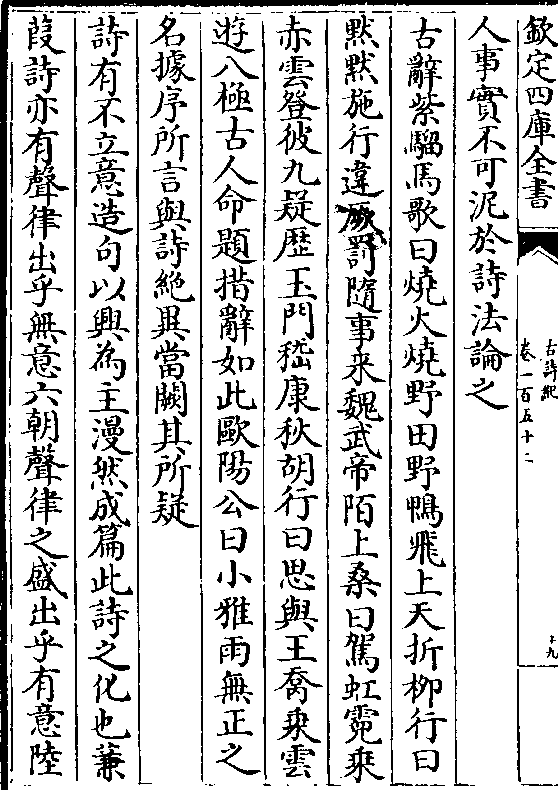 欽定四庫全書
古詩紀
卷一百五十二
十九
人事實不可泥於詩法論之
古辭紫騮馬歌曰燒火燒野田野鴨飛上天折柳行曰
默默施行違厥罰隨事來魏武帝陌上桑曰駕虹霓乘
赤雲登彼九疑歴玉門嵇康秋胡行曰思與王喬乘雲
遊八極古人命題措辭如此歐陽公曰小雅雨無正之
名據序所言與詩絶異當闕其所疑
詩有不立意造句以興為主漫然成篇此詩之化也蒹
葭詩亦有聲律出乎無意六朝聲律之盛出乎有意陸